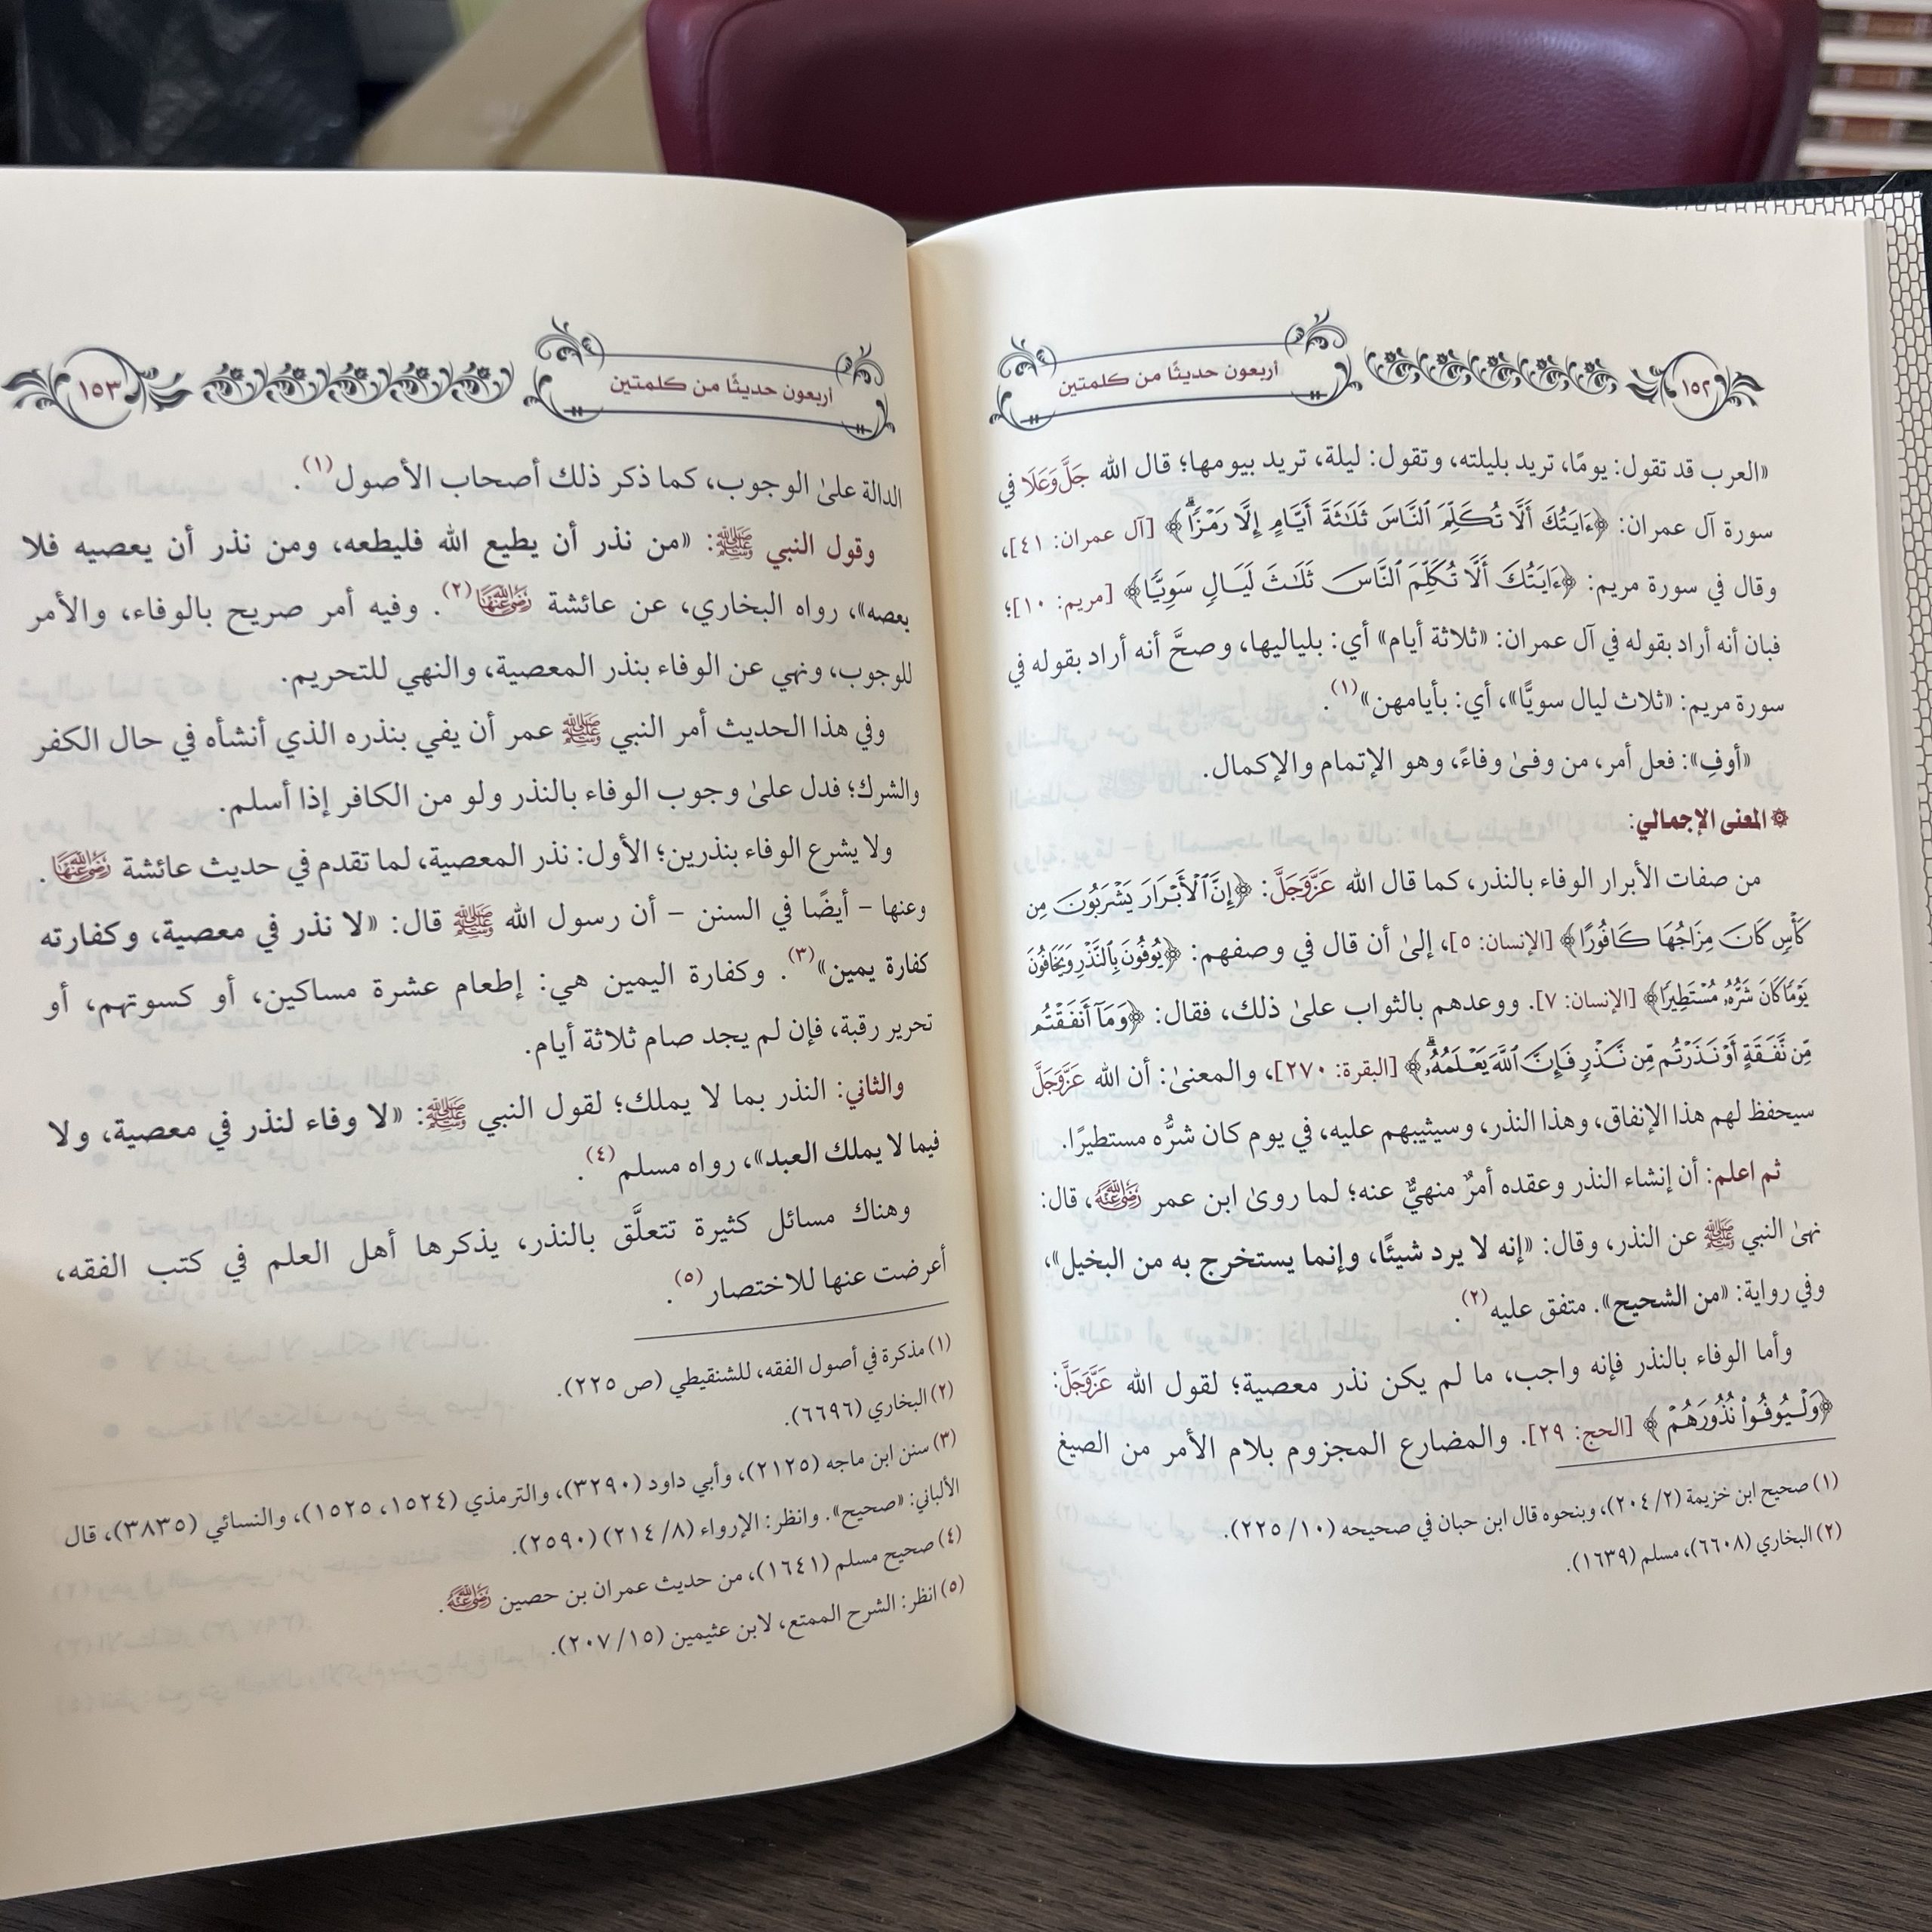 ١٥٢
أربعون حديثًا من كلمتين
«العرب قد تقول: يومًا، تريد بليلته، وتقول: ليلة، تريد بيومها؛ قال الله جَلَّ وَعَلَا في
سورة آل عمران: ﴿ءَايَتُكَ أَلَّا تُكَلِّمَ ٱلنَّاسَ ثَلَٰثَةَ أَيَّامٍ إِلَّا رَمۡزٗاۗ﴾ [آل عمران: ٤١]،
وقال في سورة مريم: ﴿ءَايَتُكَ أَلَّا تُكَلِّمَ ٱلنَّاسَ ثَلَٰثَ لَيَالٖ سَوِيّٗا﴾ [مريم: ١٠]؛
فبان أنه أراد بقوله في آل عمران: «ثلاثة أيام» أي: بلياليها، وصحَّ أنه أراد بقوله في
سورة مريم: «ثلاث ليال سويًّا»، أي: بأيامهن»(١).
«أوفِ»: فعل أمر، من وفىٰ وفاءً، وهو الإتمام والإكمال.
۞ المعنى الإجمالي:
من صفات الأبرار الوفاء بالنذر، كما قال الله عَزَّوَجَلَّ: ﴿إِنَّ ٱلۡأَبۡرَارَ يَشۡرَبُونَ مِن
كَأۡسٖ كَانَ مِزَاجُهَا كَافُورًا﴾ [الإنسان: ٥]، إلىٰ أن قال في وصفهم: ﴿يُوفُونَ بِٱلنَّذۡرِ وَيَخَافُونَ
يَوۡمٗا كَانَ شَرُّهُۥ مُسۡتَطِيرٗا﴾ [الإنسان: ٧]. ووعدهم بالثواب علىٰ ذلك، فقال: ﴿وَمَآ أَنفَقۡتُم
مِّن نَّفَقَةٍ أَوۡ نَذَرۡتُم مِّن نَّذۡرٖ فَإِنَّ ٱللَّهَ يَعۡلَمُهُۥۗ﴾ [البقرة: ٢٧٠]، والمعنىٰ: أن الله عَزَّوَجَلَّ
سيحفظ لهم هذا الإنفاق، وهذا النذر، وسيثيبهم عليه، في يوم كان شرُّه مستطيرًا.
ثم اعلم: أن إنشاء النذر وعقده أمرٌ منهيٌّ عنه؛ لما روىٰ ابن عمر رَضِيَ اللَّهُ عَنْهُ، قال:
نهىٰ النبي ﷺ عن النذر، وقال: «إنه لا يرد شيئًا، وإنما يستخرج به من البخيل»،
وفي رواية: «من الشحيح». متفق عليه(٢).
وأما الوفاء بالنذر فإنه واجب، ما لم يكن نذر معصية؛ لقول الله عَزَّوَجَلَّ:
﴿وَلۡيُوفُواْ نُذُورَهُمۡ﴾ [الحج: ٢٩]. والمضارع المجزوم بلام الأمر من الصيغ
(١) صحيح ابن خزيمة (٢/٢٠٤)، وبنحوه قال ابن حبان في صحيحه (١٠/٢٢٥).
(٢) البخاري (٦٦٠٨)، مسلم (١٦٣٩).
أربعون حديثًا من كلمتين
١٥٣
الدالة علىٰ الوجوب، كما ذكر ذلك أصحاب الأصول(١).
وقول النبي ﷺ: «من نذر أن يطيع الله فليطعه، ومن نذر أن يعصيه فلا
يعصه»، رواه البخاري، عن عائشة رَضِيَ اللَّهُ عَنْهَا(٢). وفيه أمر صريح بالوفاء، والأمر
للوجوب، ونهي عن الوفاء بنذر المعصية، والنهي للتحريم.
وفي هذا الحديث أمر النبي ﷺ عمر أن يفي بنذره الذي أنشأه في حال الكفر
والشرك؛ فدل علىٰ وجوب الوفاء بالنذر ولو من الكافر إذا أسلم.
ولا يشرع الوفاء بنذرين؛ الأول: نذر المعصية، لما تقدم في حديث عائشة رَضِيَ اللَّهُ عَنْهَا.
وعنها – أيضًا في السنن – أن رسول الله ﷺ قال: «لا نذر في معصية، وكفارته
كفارة يمين»(٣). وكفارة اليمين هي: إطعام عشرة مساكين، أو كسوتهم، أو
تحرير رقبة، فإن لم يجد صام ثلاثة أيام.
والثاني: النذر بما لا يملك؛ لقول النبي ﷺ: «لا وفاء لنذر في معصية، ولا
فيما لا يملك العبد»، رواه مسلم(٤).
وهناك مسائل كثيرة تتعلَّق بالنذر، يذكرها أهل العلم في كتب الفقه،
أعرضت عنها للاختصار(٥).
(١) مذكرة في أصول الفقه، للشنقيطي (ص ٢٢٥).
(٢) البخاري (٦٦٩٦).
(٣) سنن ابن ماجه (٢١٢٥)، وأبي داود (٣٢٩٠)، والترمذي (١٥٢٤، ١٥٢٥)، والنسائي (٣٨٣٥)، قال
الألباني: «صحيح». وانظر: الإرواء (٨/٢١٤) (٢٥٩٠).
(٤) صحيح مسلم (١٦٤١)، من حديث عمران بن حصين رَضِيَ اللَّهُ عَنْهُ.
(٥) انظر: الشرح الممتع، لابن عثيمين (١٥/٢٠٧).